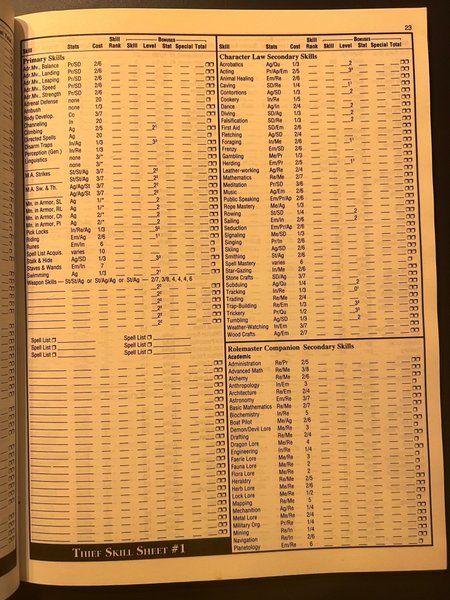 23
Skill Stats Cost Skill Rank Bonuses Level Stat Special Total
Primary Skills
Adr.Mv., Balance Pr/SD 2/6
Adr.Mv., Landing Pr/SD 2/6
Adr.Mv., Leaping Pr/SD 2/6
Adr.Mv., Speed Pr/SD 2/6
Adr.Mv., Strength Pr/SD 2/6
Adrenal Defense none 20
Ambush none 1/3
Body Develop. Co 3/7
Channeling In 20
Climbing Ag 2/5
Directed Spells Ag 20
Disarm Traps In/Ag 1/3
Perception (Gen.) In/Re 1/3
Linguistics none 3/*
none 3/*
M.A. Strikes St/St/Ag 3/7
St/St/Ag 3/7
M.A. Sw. & Th. Ag/Ag/St 3/7
Ag/Ag/St 3/7
Mn. in Armor, SL Ag 1/*
Mn. in Armor, RL Ag
Mn. in Armor, Ch Ag
Mn. in Armor, Pl Ag
Pick Locks In/Re/Ag 1/3
Riding Em/Ag 2/6
Runes Em/In 6
Spell List Acquis. varies 10
Stalk & Hide Ag/SD 1/3
Staves & Wands Em/In 7
Swimming Ag 1/3
Weapon Skills — St/St/Ag or St/Ag/Ag or St/Ag — 2/7, 3/8, 4, 4, 4, 6
Spell List Spell List
Spell List Spell List
Spell List Spell List
Thief Skill Sheet #1
Skill Stats Cost Skill Rank Bonuses Level Stat Special Total
Character Law Secondary Skills
Acrobatics Ag/Qu 1/3
Acting Pr/Ag/Em 2/5
Animal Healing Em/Re 2/6
Caving SD/Re 1/4
Contortions Ag/SD 1/3
Cookery In/Re 1/5
Dance Ag/In 2/4
Diving SD/Ag 1/3
Falsification SD/Re 1/3
First Aid SD/Em 2/6
Fletching Ag/SD 2/4
Foraging In/Me 2/6
Frenzy Em/SD 2/6
Gambling Me/Pr 1/3
Herding Em/Pr 2/5
Leather-working Ag/Re 2/4
Mathematics Re/Me 2/7
Meditation Pr/SD 3/6
Music Ag/Em 2/5
Public Speaking Em/Pr/Ag 2/6
Rope Mastery Me/Ag 1/3
Rowing St/SD 1/4
Sailing Em/In 2/6
Seduction Em/Pr/Ag 2/6
Signaling Me/SD 1/3
Singing Pr/In 2/6
Skiing Ag/SD 2/6
Smithing St/Ag 2/6
Spell Mastery varies 6
Star-Gazing In/Me 2/6
Stone Crafts SD/Ag 3/7
Subduing Ag/Qu 1/4
Tracking In/Re 1/3
Trading Re/Me 2/4
Trap-Building Re/Em 1/3
Trickery Pr/Qu 1/2
Tumbling Ag/SD 1/3
Weather-Watching In/Em 3/7
Wood Crafts Ag/Em 2/7
Rolemaster Companion Secondary Skills
Academic
Administration Re/Pr 2/5
Advanced Math Re/Me 3/8
Alchemy Re/Me 2/6
Anthropology In/Em 3
Architecture Re/Em 2/4
Astronomy Em/Re 3/7
Basic Mathematics Re/Me 2/7
Biochemistry In/Re 5
Boat Pilot Me/Ag 2/6
Demon/Devil Lore Me/Re 3
Drafting Re/Me 2/4
Dragon Lore Me/Re 4
Engineering In/Re 1/4
Faerie Lore Me/Re 3
Fauna Lore Me/Re 2
Flora Lore Me/Re 2
Heraldry Re/Me 2/5
Herb Lore Re/Me 2/6
Lock Lore Re/Me 1/2
Mapping Re/Me 5
Mechanition Ag/Re 1/4
Metal Lore Re/Me 2/4
Military Org. Pr/Re 1/4
Mining Re/In 1/4
Navigation Re/In 2/6
Planetology Em/Re 6